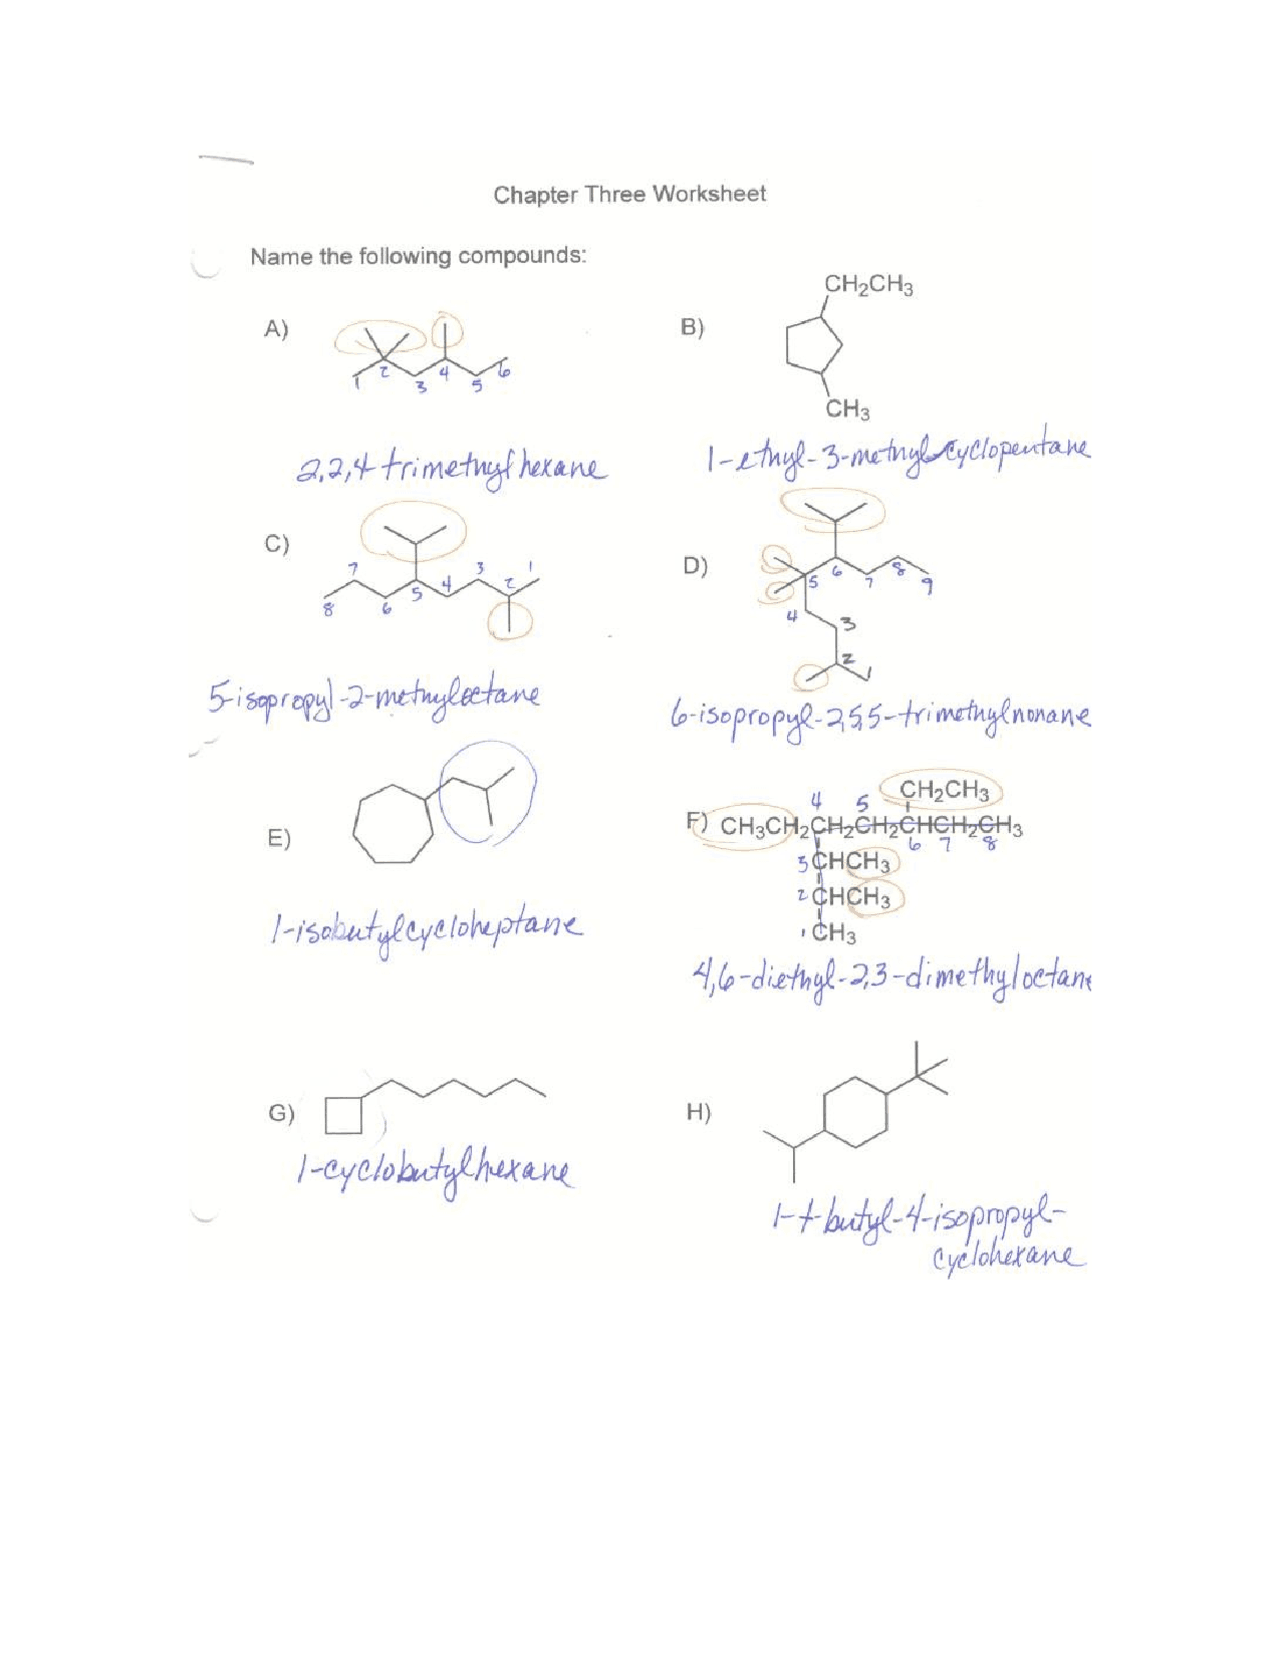 Chapter Three Worksheet
Name the following compounds:
A)
1 2 3 4 5 6
2,2,4-trimethylhexane
B)
CH2CH3
CH3
1-ethyl-3-methylcyclopentane
C)
8 7 6 5 4 3 2 1
5-isopropyl-2-methyloctane
D)
6 8
5 7 9
4
3
2
1
6-isopropyl-2,5,5-trimethylnonane
E)
1-isobutylcycloheptane
CH2CH3
4 5
F) CH3CH2CH2CH2CH2CHCH2CH3
6 7 8
3 CHCH3
2 CHCH3
1 CH3
4,6-diethyl-2,3-dimethyloctane
G)
1-cyclobutylhexane
H)
1-t-butyl-4-isopropyl-
cyclohexane